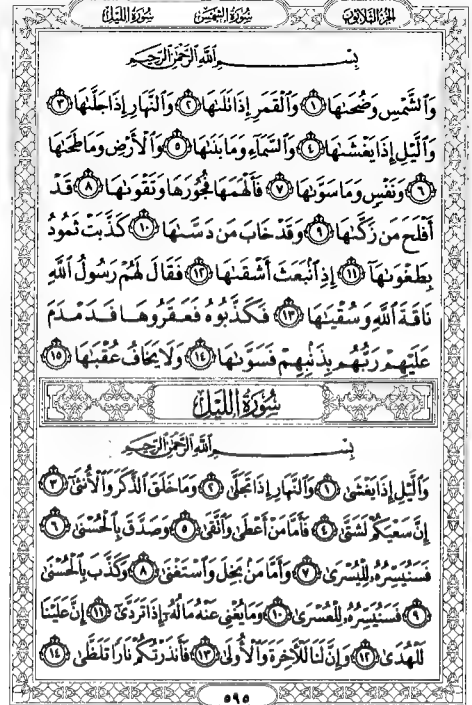 الجزء الثلاثون سورة الشمس سورة الليل
بِسْمِ اللَّهِ الرَّحْمَٰنِ الرَّحِيمِ
وَالشَّمْسِ وَضُحَىٰهَا ١ وَالْقَمَرِ إِذَا تَلَىٰهَا ٢ وَالنَّهَارِ إِذَا جَلَّىٰهَا ٣
وَالَّيْلِ إِذَا يَغْشَىٰهَا ٤ وَالسَّمَاءِ وَمَا بَنَىٰهَا ٥ وَالْأَرْضِ وَمَا طَحَىٰهَا
٦ وَنَفْسٍ وَمَا سَوَّىٰهَا ٧ فَأَلْهَمَهَا فُجُورَهَا وَتَقْوَىٰهَا ٨ قَدْ
أَفْلَحَ مَن زَكَّىٰهَا ٩ وَقَدْ خَابَ مَن دَسَّىٰهَا ١٠ كَذَّبَتْ ثَمُودُ
بِطَغْوَىٰهَا ١١ إِذِ انبَعَثَ أَشْقَىٰهَا ١٢ فَقَالَ لَهُمْ رَسُولُ اللَّهِ
نَاقَةَ اللَّهِ وَسُقْيَٰهَا ١٣ فَكَذَّبُوهُ فَعَقَرُوهَا فَدَمْدَمَ
عَلَيْهِمْ رَبُّهُم بِذَنبِهِمْ فَسَوَّىٰهَا ١٤ وَلَا يَخَافُ عُقْبَٰهَا ١٥
سُورَةُ اللَّيْلِ
بِسْمِ اللَّهِ الرَّحْمَٰنِ الرَّحِيمِ
وَالَّيْلِ إِذَا يَغْشَىٰ ١ وَالنَّهَارِ إِذَا تَجَلَّىٰ ٢ وَمَا خَلَقَ الذَّكَرَ وَالْأُنثَىٰ ٣
إِنَّ سَعْيَكُمْ لَشَتَّىٰ ٤ فَأَمَّا مَنْ أَعْطَىٰ وَاتَّقَىٰ ٥ وَصَدَّقَ بِالْحُسْنَىٰ ٦
فَسَنُيَسِّرُهُ لِلْيُسْرَىٰ ٧ وَأَمَّا مَن بَخِلَ وَاسْتَغْنَىٰ ٨ وَكَذَّبَ بِالْحُسْنَىٰ
٩ فَسَنُيَسِّرُهُ لِلْعُسْرَىٰ ١٠ وَمَا يُغْنِي عَنْهُ مَالُهُ إِذَا تَرَدَّىٰ ١١ إِنَّ عَلَيْنَا
لَلْهُدَىٰ ١٢ وَإِنَّ لَنَا لَلْآخِرَةَ وَالْأُولَىٰ ١٣ فَأَنذَرْتُكُمْ نَارًا تَلَظَّىٰ ١٤
٥٩٥